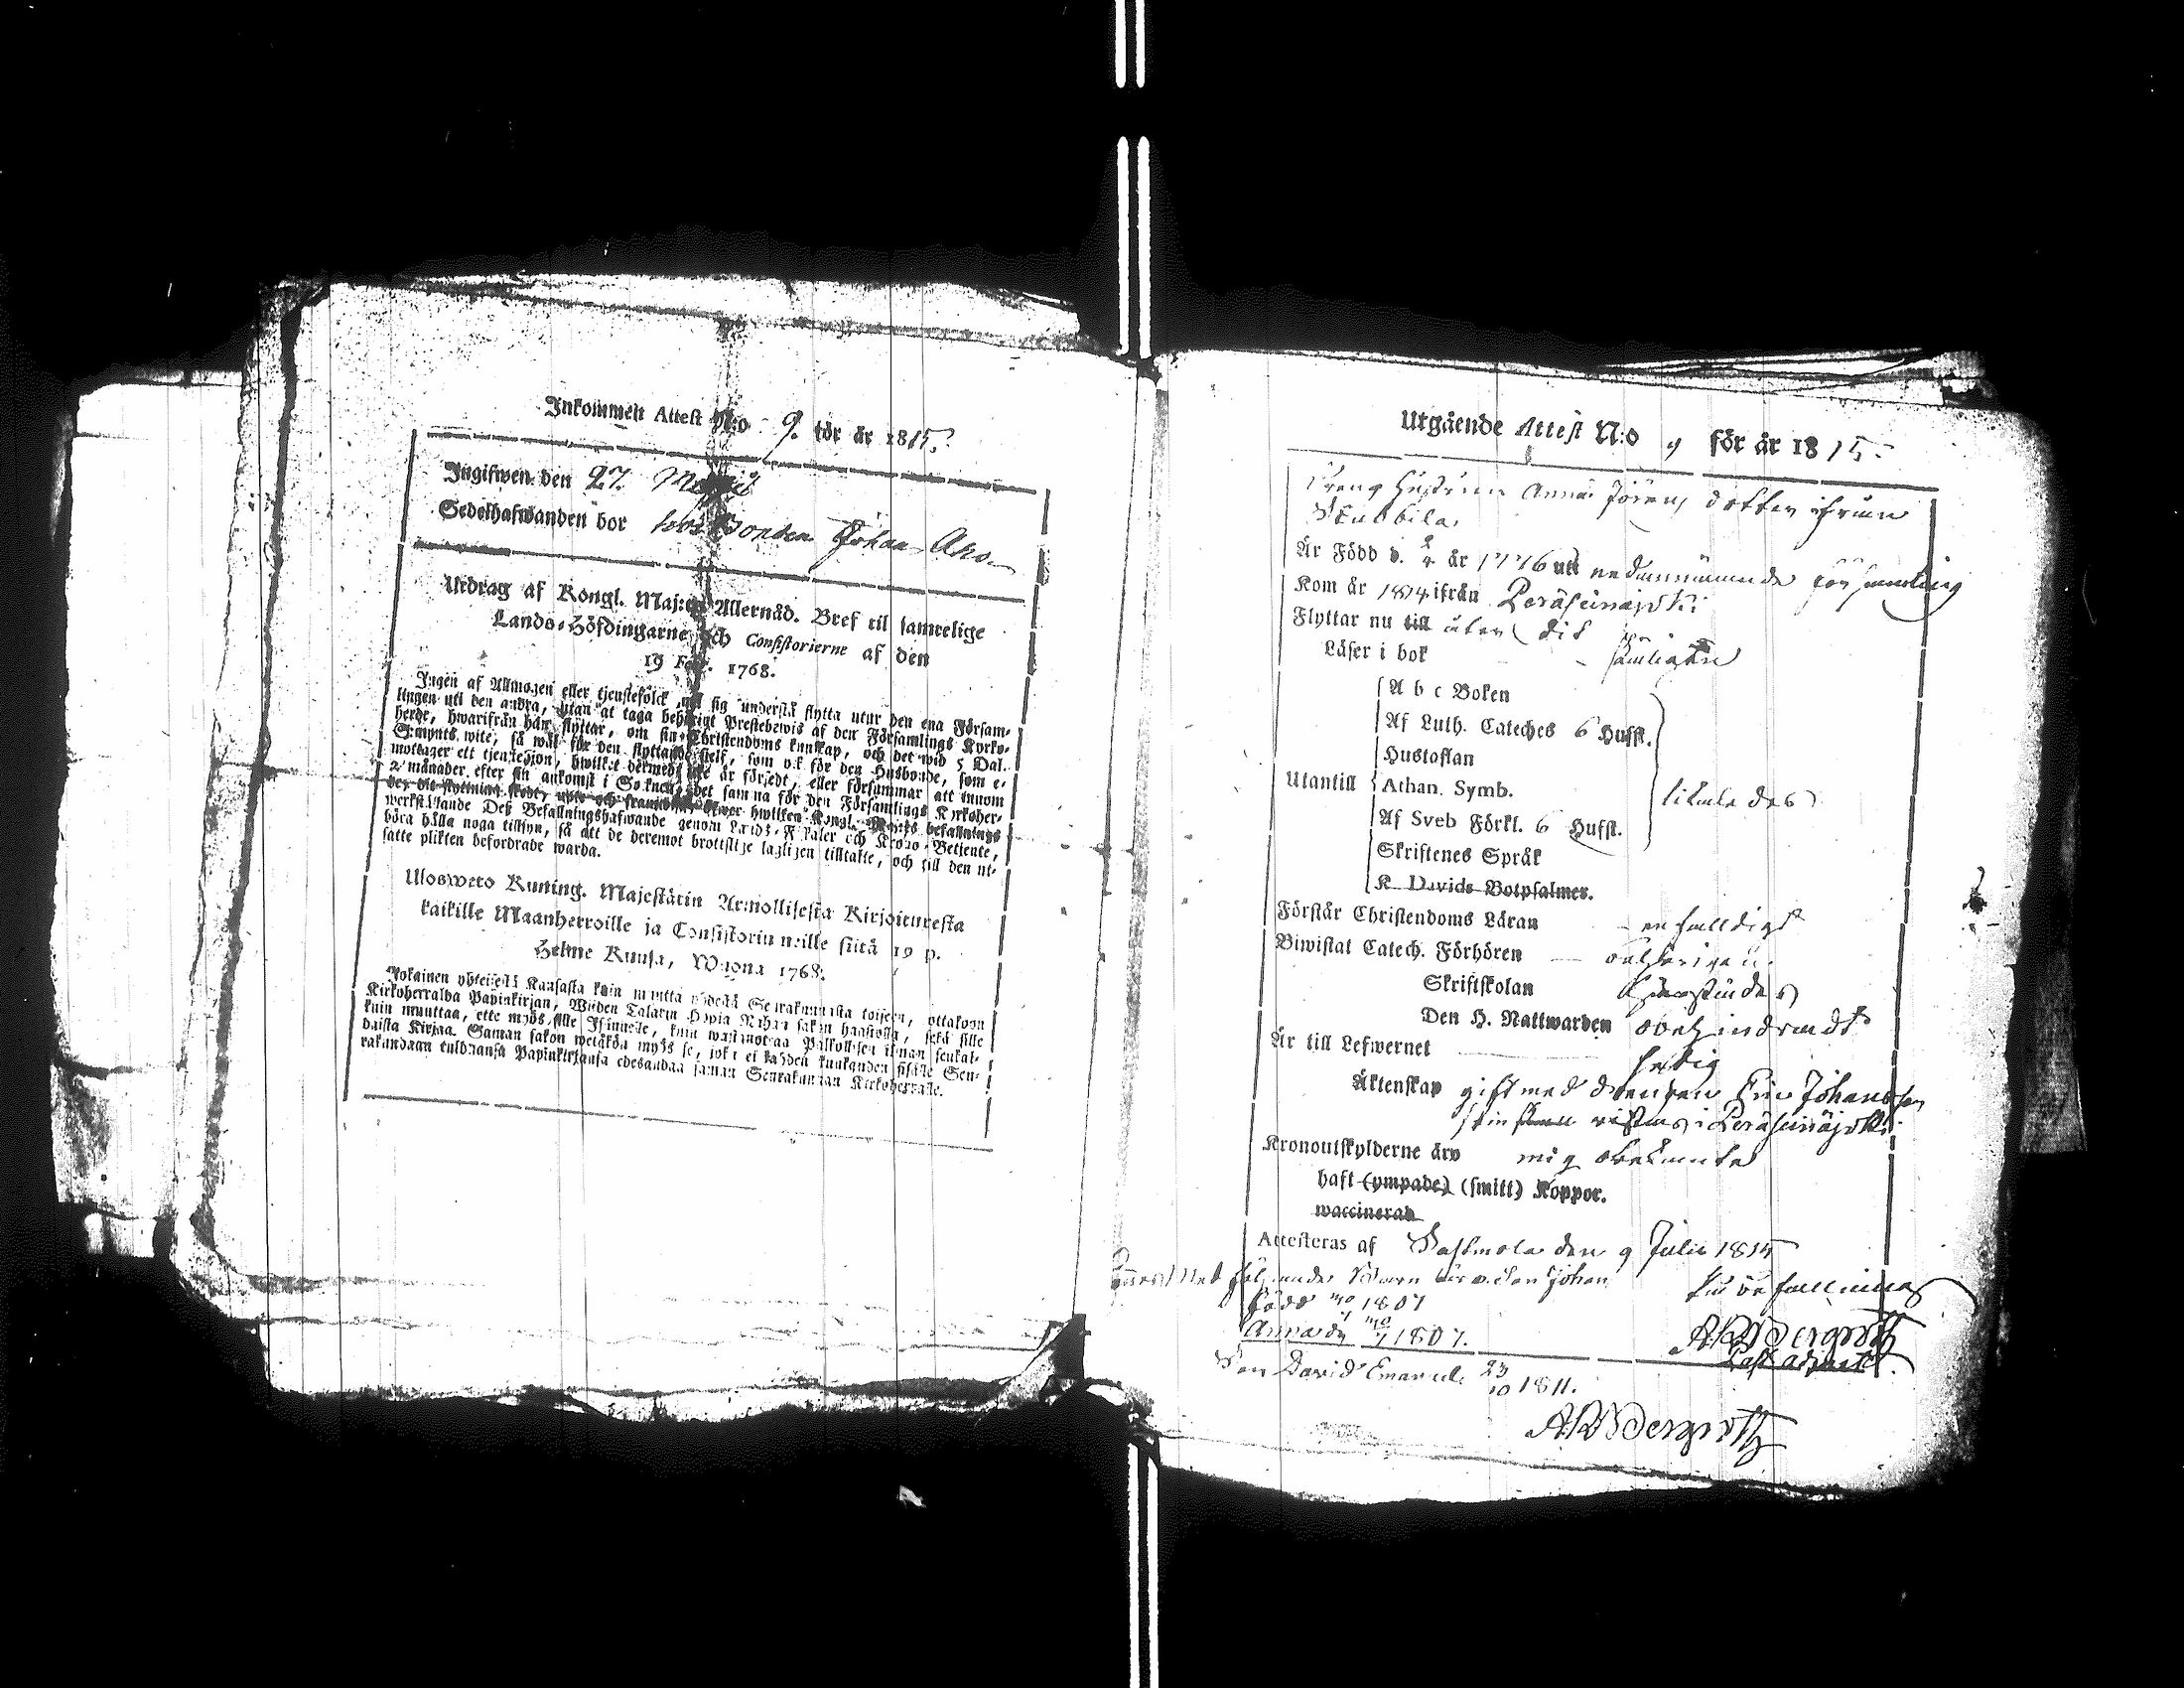 Inkommen Attest N:o 9. för år 1815.
Ingifwen den 27.
Sedelhafwanden bor hos Bonden Johan Aho
Utdrag af Kongl. Maj:ts Allernåd. Bref til samtelige
Lands-Höfdingarne och Consistorierne af den
19 Febr. 1768.
Ingen af Allmogen eller tjenstefolck må sig understå flytta utur den ena Försam-
lingen uti den andra, utan at taga behörigt Prestebewis af den Församlings Kyrko-
herde, hwarifrån han flyttar, om sin Christendoms kunskap, och det wid 5 Dal.
S:mynts wite, så wäl för den flyttande sielf, som ock för den Husbonde, som e-
mottager ett tjenstehjon, hwilket dermed icke är försedt, eller försummar att innom
2 månader efter sin ankomst i Soknen, det samma för den Församlings Kyrkoher-
de, dit flyttning skedt, upte och framwisa, öfwer hwilken Kongl. Maj:ts befallnings
werkställande Deß Befallningshafwande genom Lands-Fiskaler och Krono-Betjente,
böra hålla noga tillsyn, så att de deremot brottslige lagligen tilltalte, och till den ut-
satte plikten befordrade warda.
Ulosweto Kuning. Majestätin Armollisesta Kirjoituresta
kaikille Maanherroille ja Consistoriumeille siitä 19 p.
Helme Kuusa, Wuonna 1768.
Jokainen yhteisestä Kansasta kuin muutta yhdestä Seurakunnasta toiseen, ottakoon
Kirkoherralda Papinkirjan, Wiiden Talarin Hopia Rahan sakon haastolla, sekä sille
kuin muuttaa, ette myös sille Isännälle, kuin wastanottaa Palkollisen ilman senkal-
daista Kirjaa. Saman sakon wetäköä myös se, joka ei kahden kuukauden sisälle Seu-
rakundaan tulduansa Papinkirjaansa edesandaa saman Seurakunnan Kirkoherralle.
Utgående Attest N:o 9 för år 1815.
Dreng Hustrun Anna Jörens dotter ifrån
Skubbila
Är Född d. år 1776 uti nedannämnde församling
Kom år 1814 ifrån Peräseinäjoki
Flyttar nu till åter dit
Läser i bok
A b c Boken
Af Luth. Cateches 6 Hufst.
Hustaflan
Utantill Athan. Symb.
likaledes
Af Sveb Förkl. 6 Hufst.
Skriftenes Språk
K Davids Botpsalmer.
Förstår Christendoms Läran enfalldigt
Biwistat Catech. Förhören
Skriftskolan
Den H. Nattwarden obehindradt
Är till Lefwernet
Äktenskap gift med drengen Eric Johansson
i Peräseinäjoki
Kronoutskylderne äro mig obekante
haft (ympade) (smitt) Koppor.
waccinerad
Attesteras af den 9 Julii 1815
Johan
född 1807
1807.
Son David Emanuel 23/10 1811.